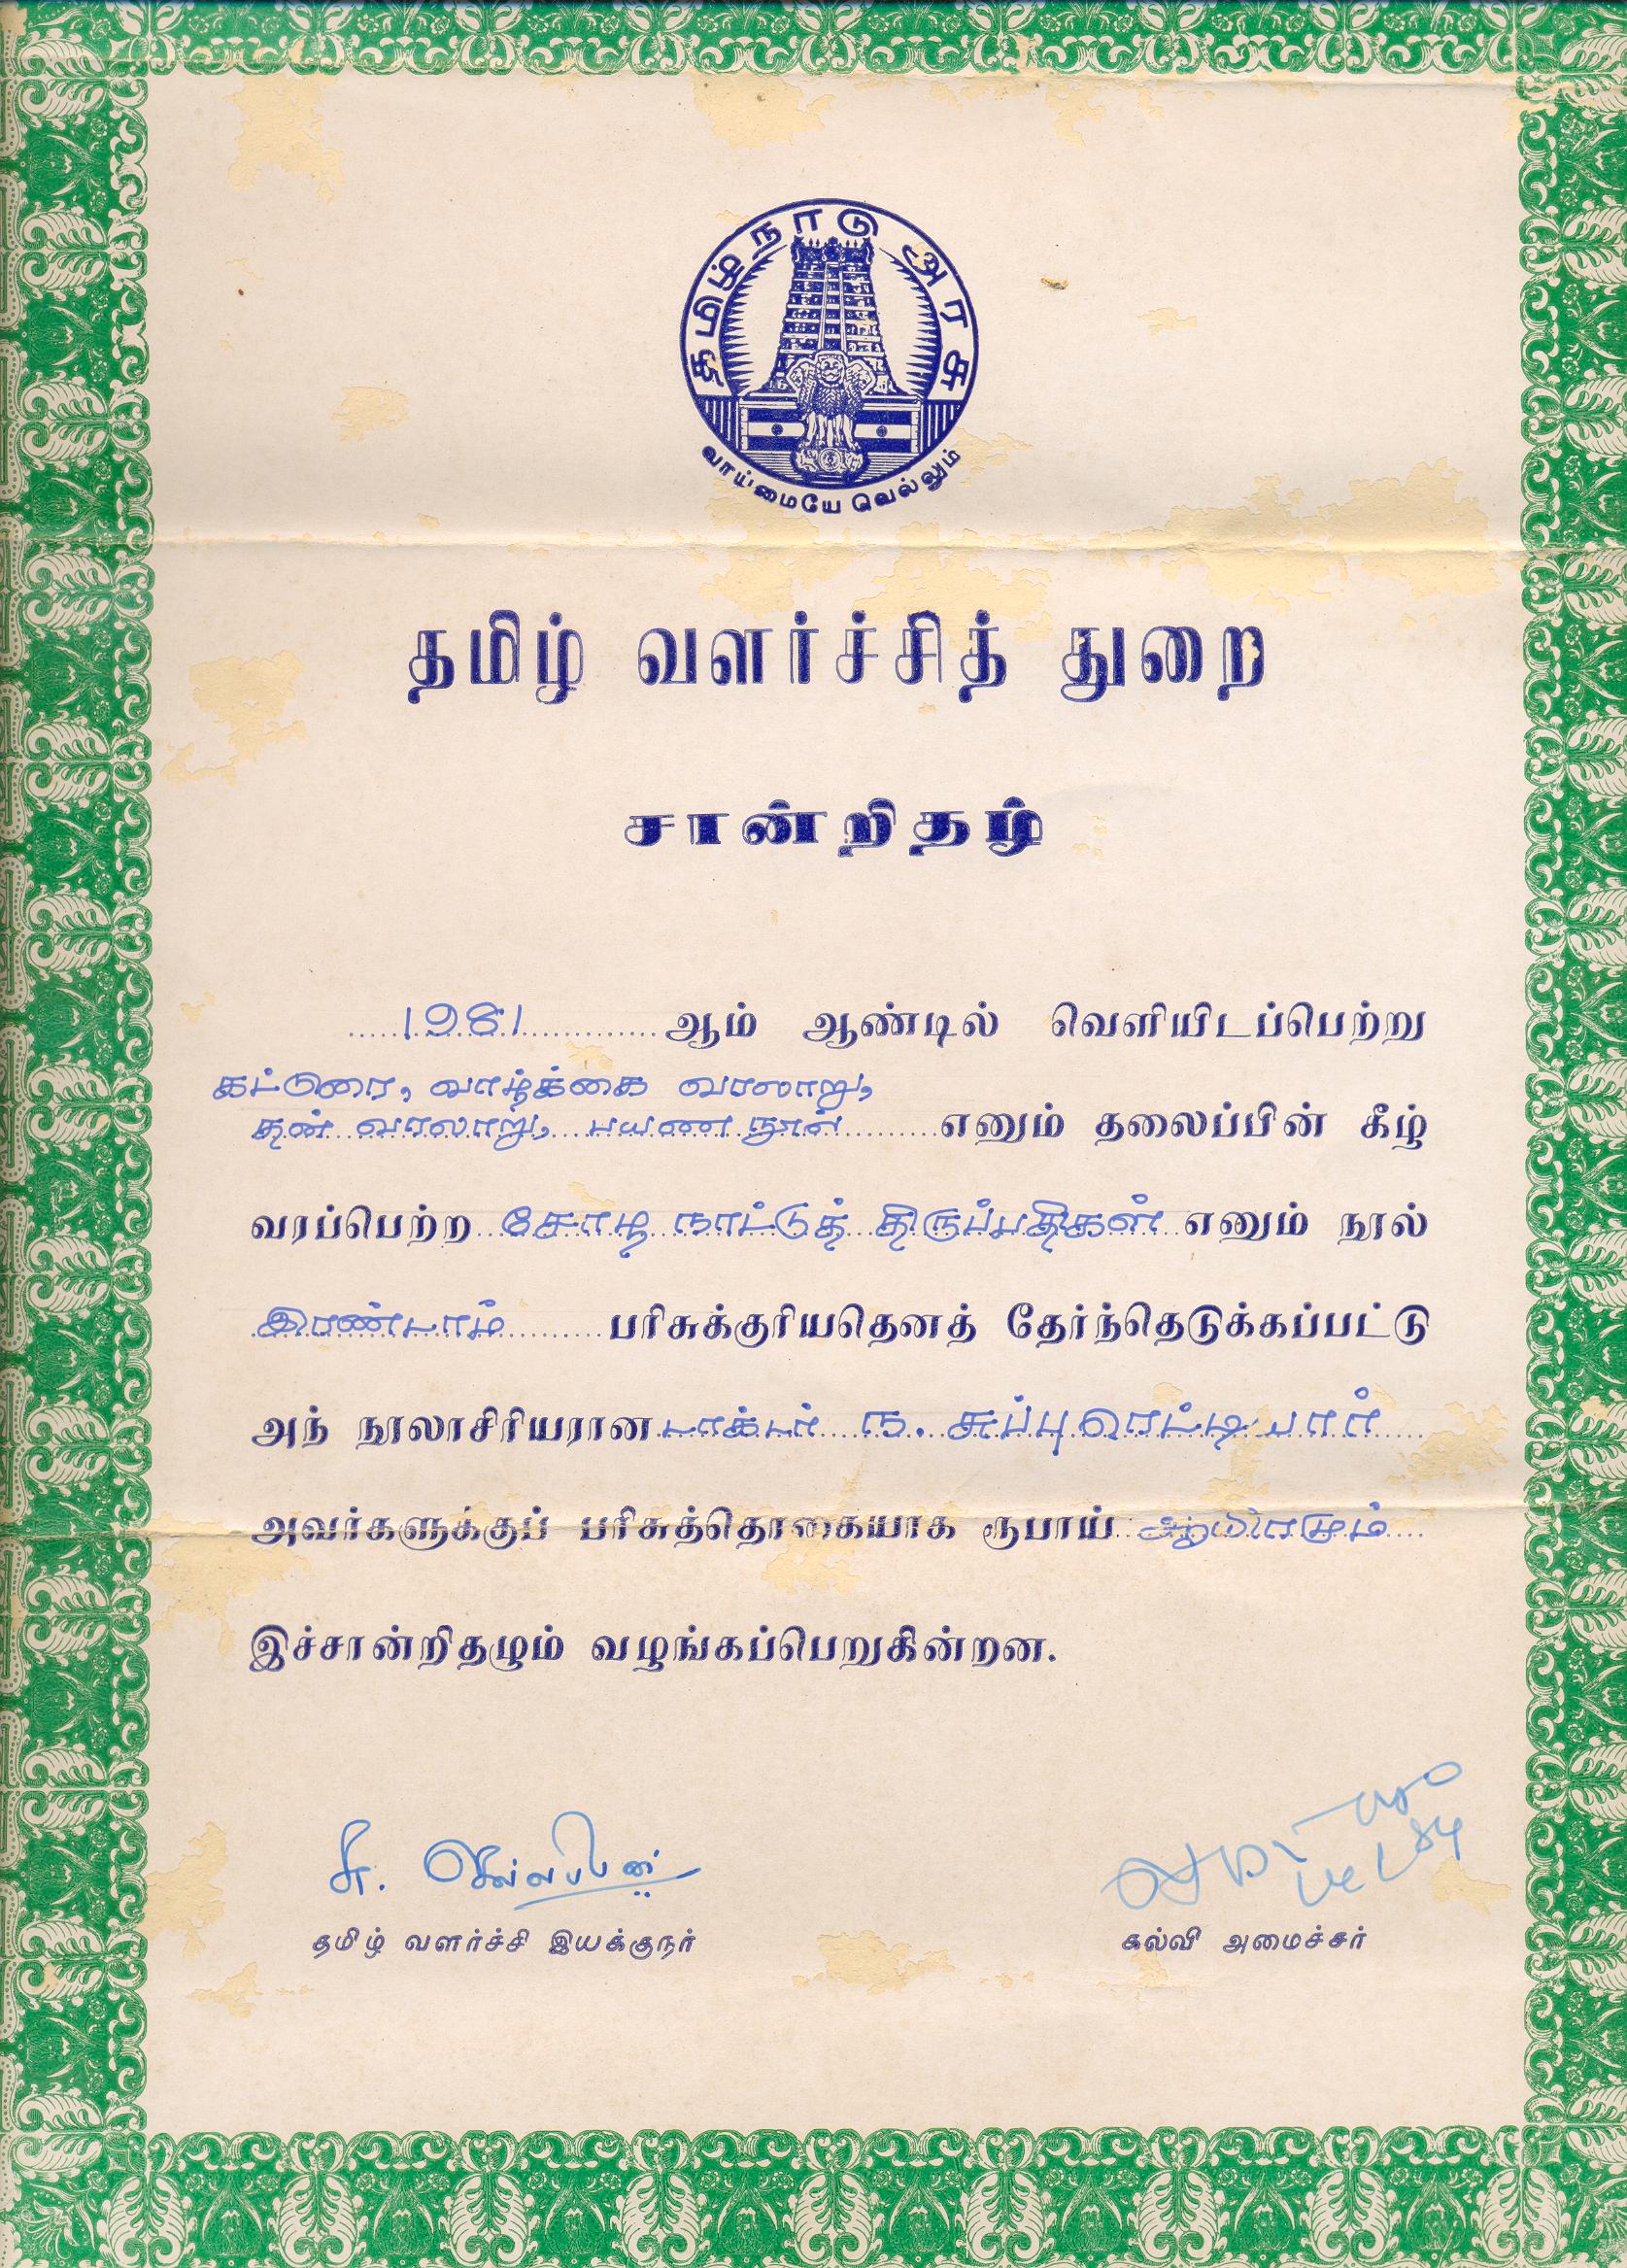 தமிழ்நாடு அரசு
வாய்மையே வெல்லும்
தமிழ் வளர்ச்சித் துறை
சான்றிதழ்
1981 ஆம் ஆண்டில் வெளியிடப்பெற்று
கட்டுரை, வாழ்க்கை வரலாறு,
தன் வரலாறு, பயண நூல் எனும் தலைப்பின் கீழ்
வரப்பெற்ற சோழ நாட்டுத் திருப்பதிகள் எனும் நூல்
இரண்டாம் பரிசுக்குரியதெனத் தேர்ந்தெடுக்கப்பட்டு
அந் நூலாசிரியரான டாக்டர் ந. சுப்பு ரெட்டியார்
அவர்களுக்குப் பரிசுத்தொகையாக ரூபாய் ஆயிரமும்
இச்சான்றிதழும் வழங்கப்பெறுகின்றன.
தமிழ் வளர்ச்சி இயக்குநர்
கல்வி அமைச்சர்